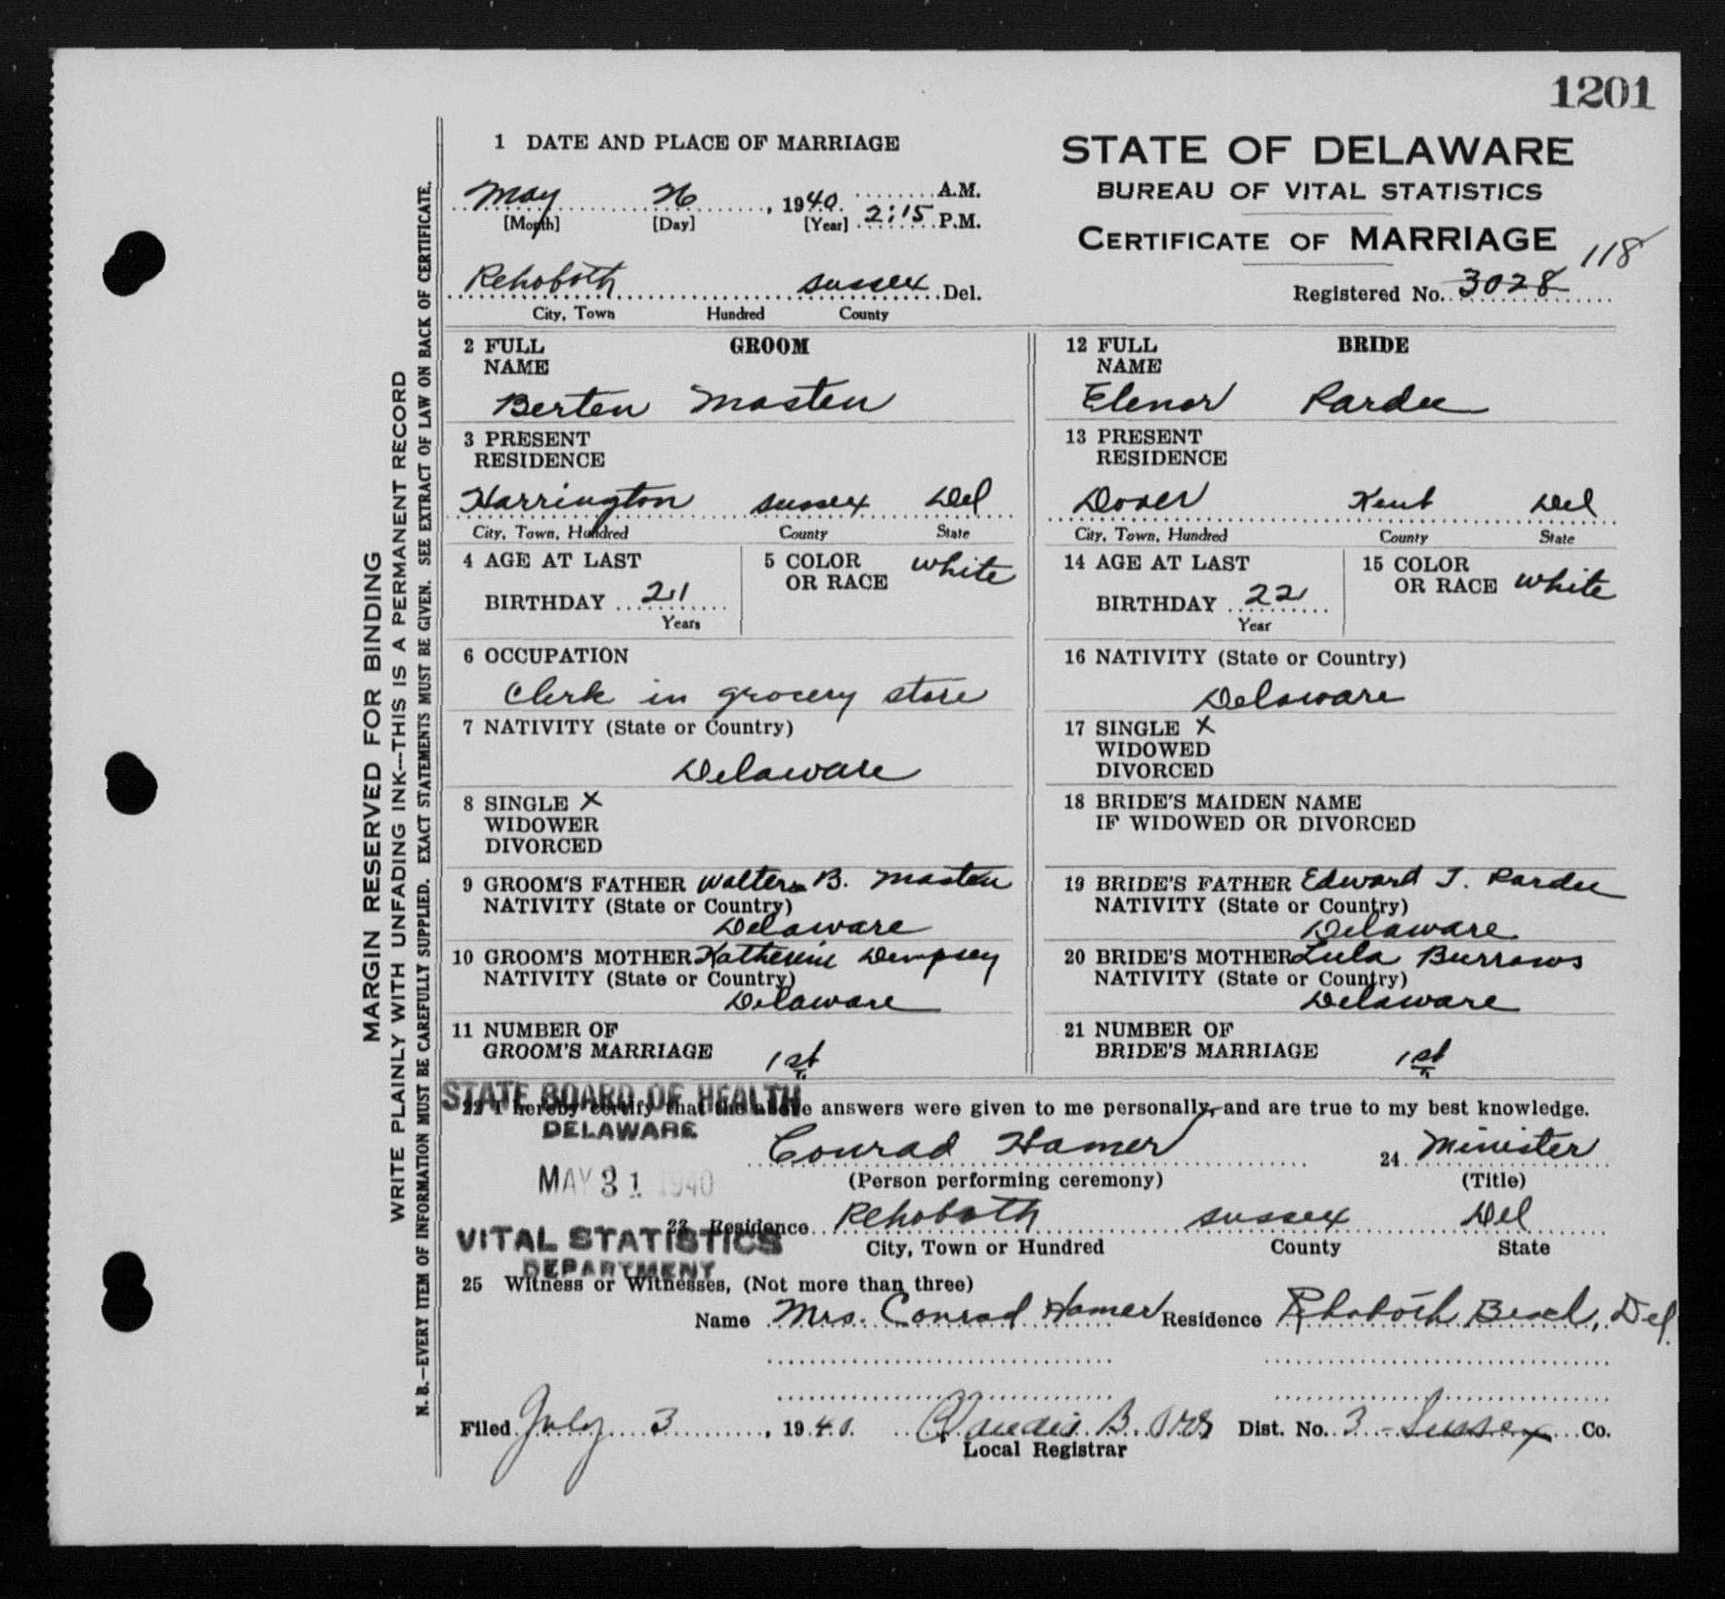 1201
1 DATE AND PLACE OF MARRIAGE
May 26, 1940 A.M.
[Month] [Day] [Year] 2:15 P.M.
Rehoboth Sussex Del.
City, Town Hundred County
STATE OF DELAWARE
BUREAU OF VITAL STATISTICS
CERTIFICATE OF MARRIAGE
118
Registered No. 3028
2 FULL NAME GROOM
Berten Masten
3 PRESENT RESIDENCE
Harrington Sussex Del
City, Town, Hundred County State
4 AGE AT LAST BIRTHDAY 21
Years
5 COLOR OR RACE white
6 OCCUPATION
Clerk in grocery store
7 NATIVITY (State or Country)
Delaware
8 SINGLE X
WIDOWER
DIVORCED
9 GROOM'S FATHER Walter B. Masten
NATIVITY (State or Country)
Delaware
10 GROOM'S MOTHER Katherine Dempsey
NATIVITY (State or Country)
Delaware
11 NUMBER OF
GROOM'S MARRIAGE 1st
12 FULL NAME BRIDE
Elenor Pardee
13 PRESENT RESIDENCE
Dover Kent Del
City, Town, Hundred County State
14 AGE AT LAST BIRTHDAY 22
Year
15 COLOR OR RACE white
16 NATIVITY (State or Country)
Delaware
17 SINGLE X
WIDOWED
DIVORCED
18 BRIDE'S MAIDEN NAME
IF WIDOWED OR DIVORCED
19 BRIDE'S FATHER Edward J. Pardee
NATIVITY (State or Country)
Delaware
20 BRIDE'S MOTHER Lula Burrows
NATIVITY (State or Country)
Delaware
21 NUMBER OF
BRIDE'S MARRIAGE 1st
STATE BOARD OF HEALTH
22 I hereby certify that the above answers were given to me personally, and are true to my best knowledge.
DELAWARE
Conrad Hamer 24 Minister
MAY 31 1940
(Person performing ceremony) (Title)
23 Residence Rehoboth Sussex Del
VITAL STATISTICS
City, Town or Hundred County State
DEPARTMENT
25 Witness or Witnesses, (Not more than three)
Name Mrs. Conrad Hamer Residence Rehoboth Beach, Del.
Filed July 3, 1940. B. Orr Dist. No. 3 - Sussex Co.
Local Registrar
MARGIN RESERVED FOR BINDING
WRITE PLAINLY WITH UNFADING INK---THIS IS A PERMANENT RECORD
N. B.--EVERY ITEM OF INFORMATION MUST BE CAREFULLY SUPPLIED. EXACT STATEMENTS MUST BE GIVEN. SEE EXTRACT OF LAW ON BACK OF CERTIFICATE.